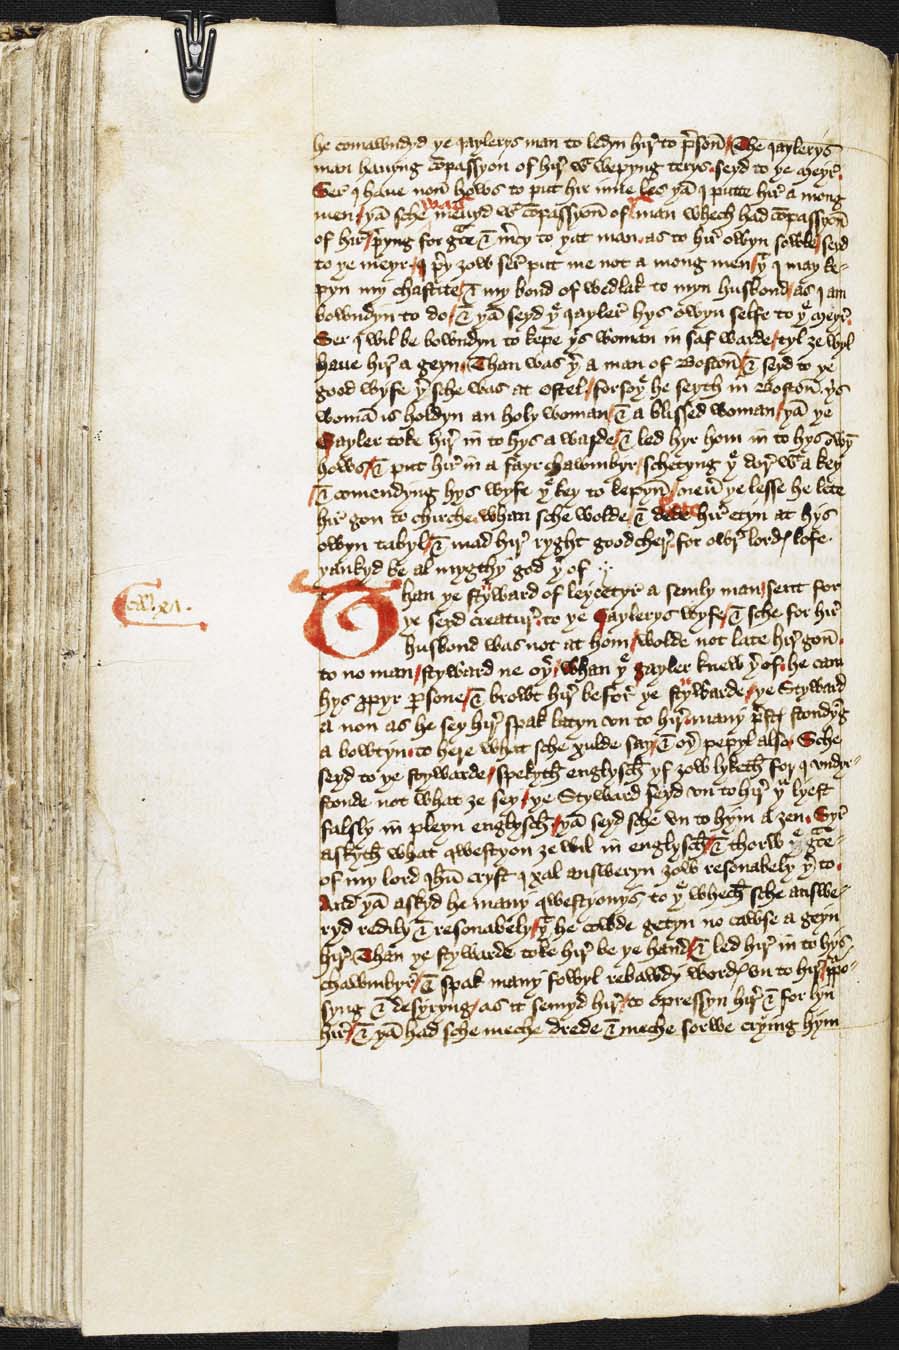 he comawndyd ye jaylerys man to ledyn hir to p̄son / The jaylerys
man hauyng cōpassyon of hir wt wepyng terys . seyd to ye meyr .
Ser I haue non hows to put hir inne les yā I putte hir a mong
men / yā sche was meuyd wt cōpassyon of ye man whech had cōpassyon
of hir / p̄yng for gr̄ce & m̄cy to yat man . as to hir owyn sowle / seyd
to ye meyr . I p̄y ȝow ser put me not a mong men / yt I may ke-
pyn my chastite / & my bond of wedlak to myn husbond / as I am
bowndyn to do / & yā seyd ye jayler hys owyn selfe to ye meyr .
Ser I wil be bowndyn to kepe yis woman in saf warde / tyl ȝe wyl
haue hir a geyn . Than was yr a man of Boston / & seyd to ye
good wyfe yr sche was at ostel / forsoye he seyth in Boston . yis
womā is holdyn an holy woman / & a blissed woman / yā ye
Jayler toke hir in to hys awarde / & led hyr hom in to hys owyn
hows / & put hir in a fayr chawmbyr / schetyng ye dor wt a key
/ & comendyng hys wyfe ye key to kepyn / neū ye lesse he lete
hir gon to chirche . whan sche wolde / & dede hir etyn at hys
owyn tabyl / & mad hir ryght good cher . for owr lordys lofe .
yankyd be al mygthy god yr of .
Cam xlvii .
Than ye styward of leycetyr a semly man / sent for
ye seyd creatur . to ye Jaylerys wyfe / & sche for hir
husbond was not at hom / wolde not late hir gon .
to no man / styward ne oyr / whan ye Jayler knew yr of . he cam
hys ꝓpyr p̄sone / & browt hir befor ye stywarde / ye Styward
a non as he sey hir spak latyn vn to hir . many p̄stys stondyng
a bowtyn . to here what sche xulde say / & oyr pepyl also . Sche
seyd to ye stywarde / spekyth englysch yf ȝow lyketh for I vndyr-
stonde not what ȝe sey / ye Styward seyd vn to hir yu lyest
falsly in pleyn englysch / yā seyd sche vn to hym a ȝen . Syr
askyth what qwestyon ȝe wil in englysch / & thorw ye gr̄ce
of my lord ihū cryst I xal answeryn ȝow resonabely yr to .
And yā askyd he many qwestyonys to ye whech sche answe-
ryd redily & resonabely / yt he cowde getyn no cawse a geyn
hir . Than ye stywarde toke hir be ye hand / & led hir in to hys
chawmbyr / & spak many fowyl rebawdy wordys vn to hir / ꝑpo-
syng & desyryng / as it semyd hir / to opressyn hir & for lyn
hir / & yā had sche meche drede & meche sorwe crying hym